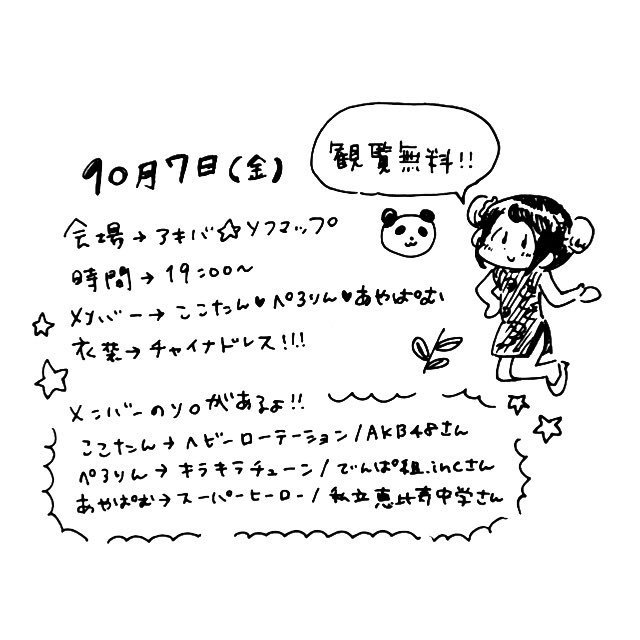 観覧無料!!
10月7日(金)
会場→アキバ☆ソフマップ
時間→19:00~
メンバー→ここたん♥ぺろりん♥あやぱむ
衣装→チャイナドレス!!!
メンバーのソロがあるよ!!
ここたん→ヘビーローテーション/AKB48さん
ぺろりん→キラキラチューン/でんぱ組.incさん
あやぱむ→スーパーヒーロー/私立恵比寿中学さん